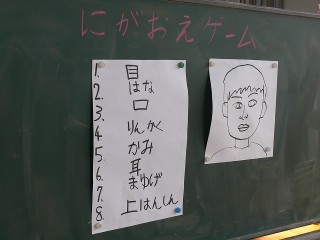 にがおえゲーム
1. 目
2. はな
3. 口
4. りんかく
5. かみ
6. 耳
7. まゆげ
8. 上はんしん